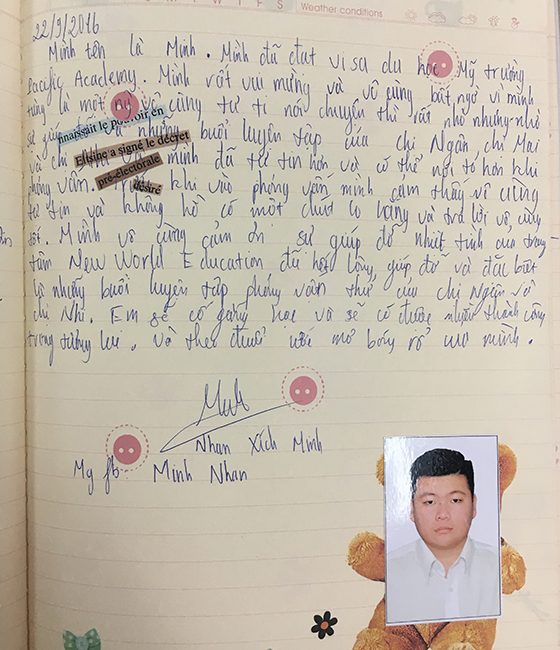 M T W T F S
Weather conditions
22/9/2016
Minh tên là Minh. Mình đã đạt visa du học Mỹ trường
Pacific Academy. Mình rất vui mừng và vô cùng bất ngờ vì mình
từng là một vô cùng tự ti nói chuyện thì rất nhỏ nhưng nhờ
sự giúp những buổi luyện tập của chị Ngân, chị Mai
và chị mình đã tự tin hơn và có thể nói to hơn khi
phỏng vấn. khi vào phỏng vấn mình cảm thấy vô cùng
tự tin và không hề có một chút lo lắng và trả lời vô cùng
tốt. Mình vô cùng cảm ơn sự giúp đỡ nhiệt tình của trung
tâm New World Education đã hết lòng giúp đỡ và đặc biệt
là những buổi luyện tập phỏng vấn thử của chị Ngân và
chị Nhi. Em sẽ cố gắng học và sẽ có được nhiều thành công
trong tương lai. và theo đuổi ước mơ bóng rổ của mình.
nnaissait le pouvoir, en
Eltsine a signé le décret
pré-électorale
désiré
Nhan Xích Minh
My fb Minh Nhan